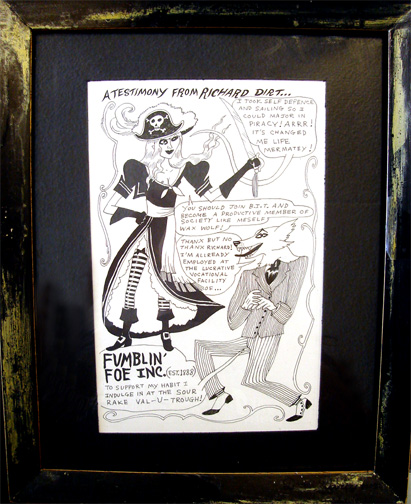 A TESTIMONY FROM RICHARD DIRT...
I TOOK SELF DEFENCE
AND SAILING SO I
COULD MAJOR IN
PIRACY! ARRR!
IT'S CHANGED
ME LIFE
MERMATEY!
YOU SHOULD JOIN B.J.T. AND
BECOME A PRODUCTIVE MEMBER OF
SOCIETY LIKE MESELF,
WAX WOLF!
THANX BUT NO
THANX RICHARD!
I'M ALLREADY
EMPLOYED AT
THE LUCRATIVE
VOCATIONAL
FACILITY
OF...
FUMBLIN'
FOE INC. (EST. 1988)
TO SUPPORT MY HABIT I
INDULGE IN AT THE SOUR
RAKE VAL-U-TROUGH!